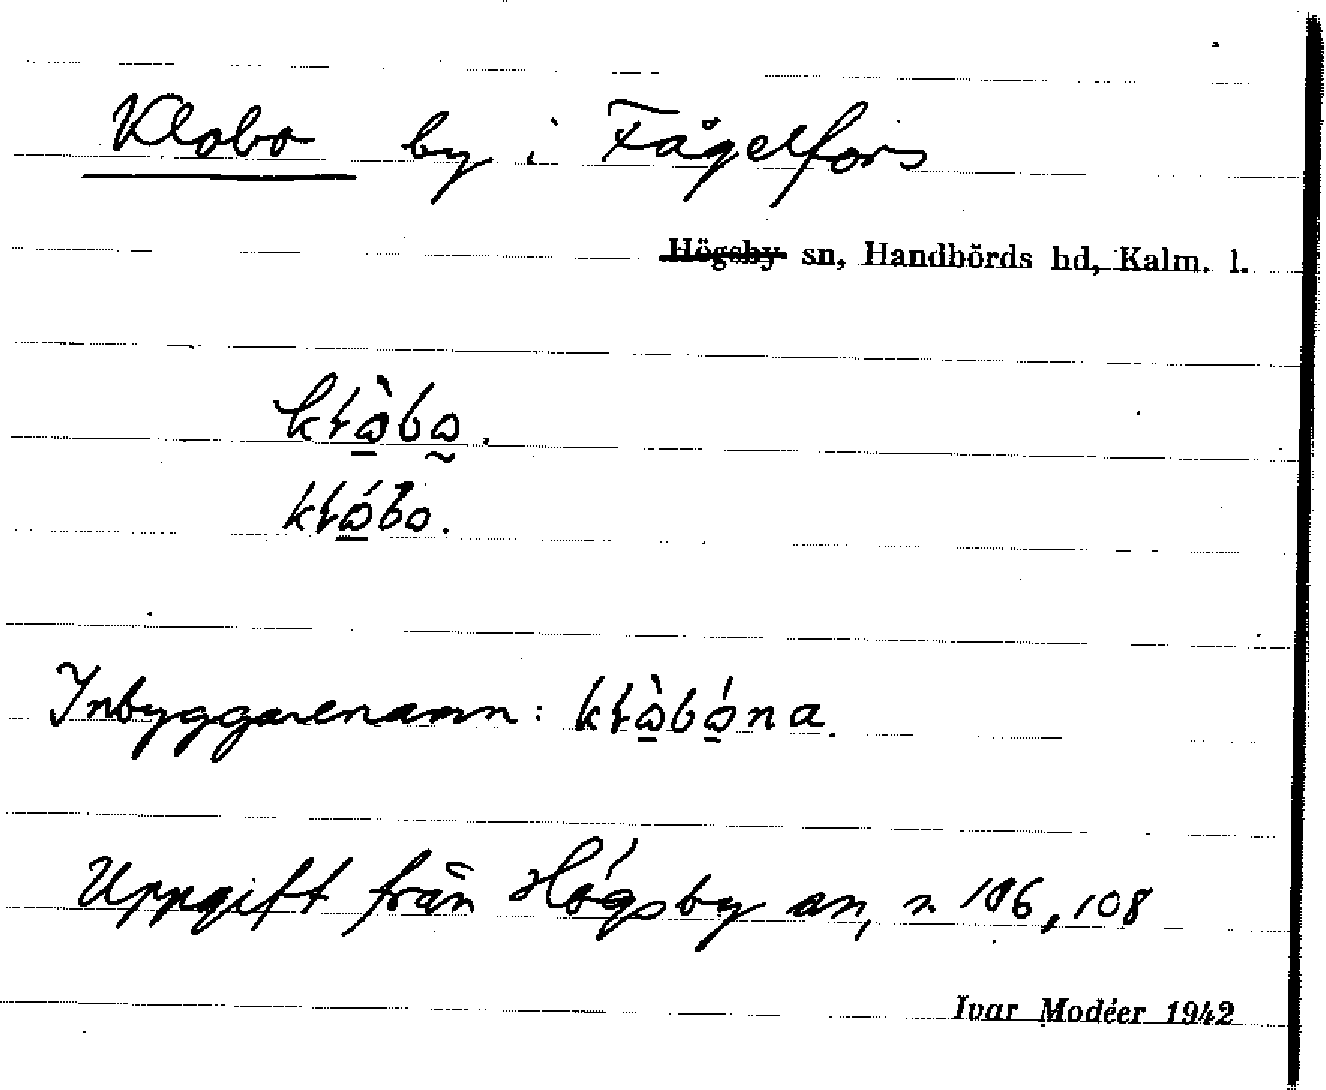 Klobo by i Fågelfors
Högsby sn, Handbörds hd, Kalm. l.
Inbyggarenamn:
Uppgift från Högsby sn, n 106, 108
Ivar Modéer 1942